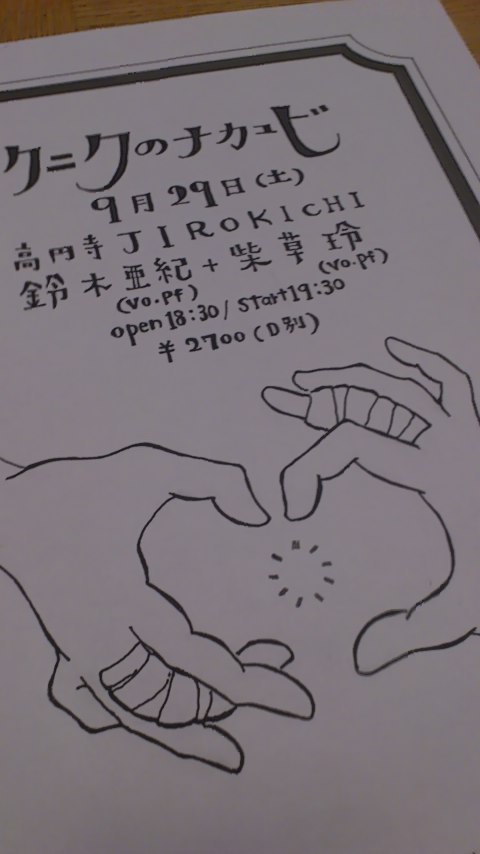 クニクのナカユビ
9月29日(土)
高円寺 JIROKICHI
鈴木亜紀+柴草玲
(vo.pf) (vo.pf)
open 18:30/start 19:30
¥2700(D別)